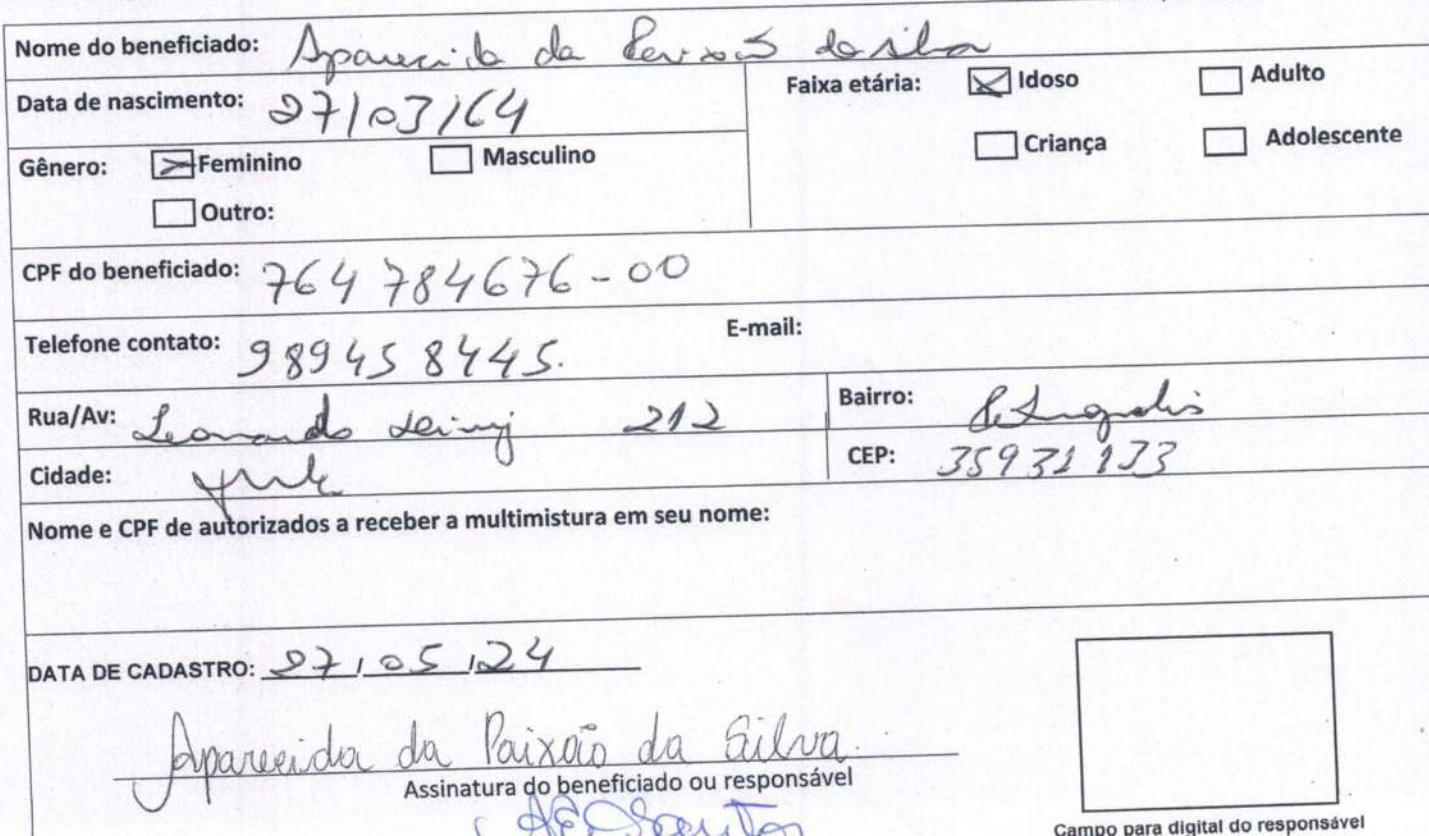 Nome do beneficiado: Aparecida da Paixão da silva
Data de nascimento: 27/03/64
Faixa etária: Idoso Adulto
Criança Adolescente
Gênero: Feminino Masculino
Outro:
CPF do beneficiado: 764 784676-00
Telefone contato: 98945 8445.
E-mail:
Rua/Av: Leonardo 212
Bairro:
Cidade:
CEP: 35931133
Nome e CPF de autorizados a receber a multimistura em seu nome:
DATA DE CADASTRO: 27/05/24
Aparecida da Paixão da Silva
Assinatura do beneficiado ou responsável
Campo para digital do responsável